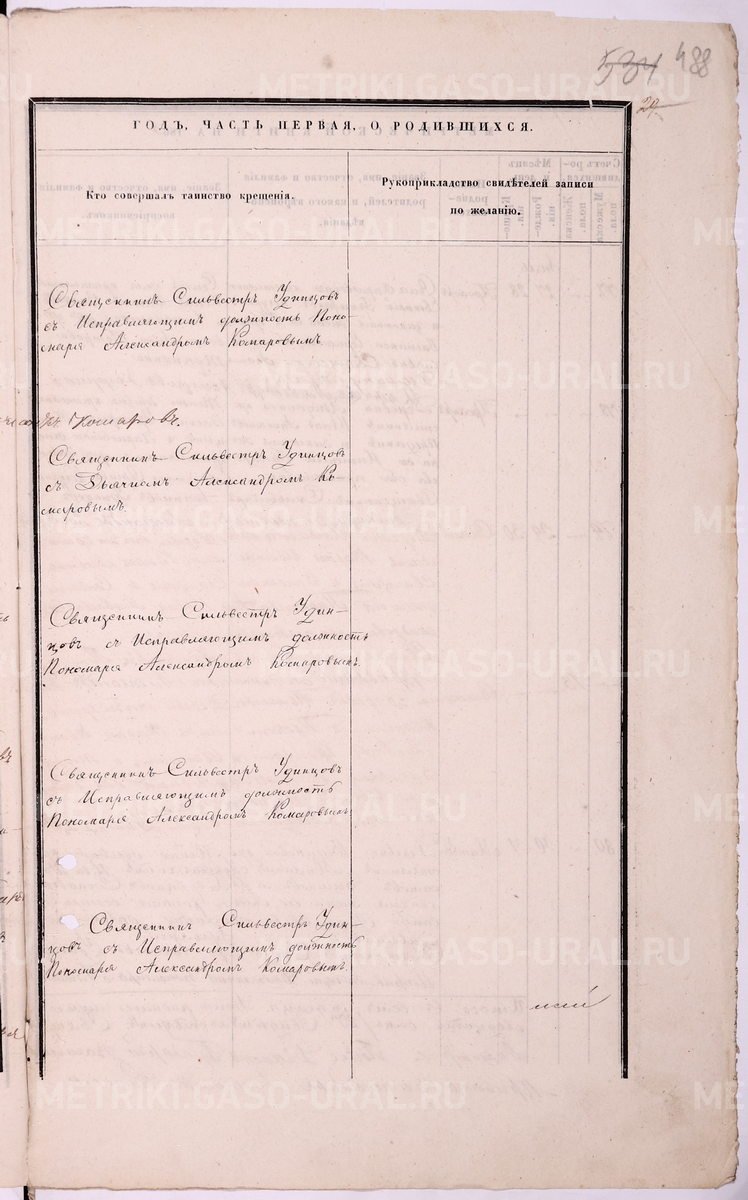 534 488
29
ГОДЪ, ЧАСТЬ ПЕРВАЯ, О РОДИВШИХСЯ.
Кто совершалъ таинство крещенія.
Рукоприкладство свидѣтелей записи
по желанію.
Священникъ Сильвестръ Удинцовъ
съ Исправляющимъ должность Поно-
маря Александромъ Комаровымъ
Комаровъ.
Священникъ Сильвестръ Удинцовъ
съ Дьячкомъ Александромъ Ко-
маровымъ.
Священникъ Сильвестръ Удин-
цовъ съ Исправляющимъ должность
Пономаря Александромъ Комаровымъ.
Священникъ Сильвестръ Удинцовъ
съ Исправляющимъ должность
Пономаря Александромъ Комаровымъ
Священникъ Сильвестръ Удин-
цовъ съ Исправляющимъ должность
Пономаря Александромъ Комаровымъ.
METRIKI.GASO-URAL.RU